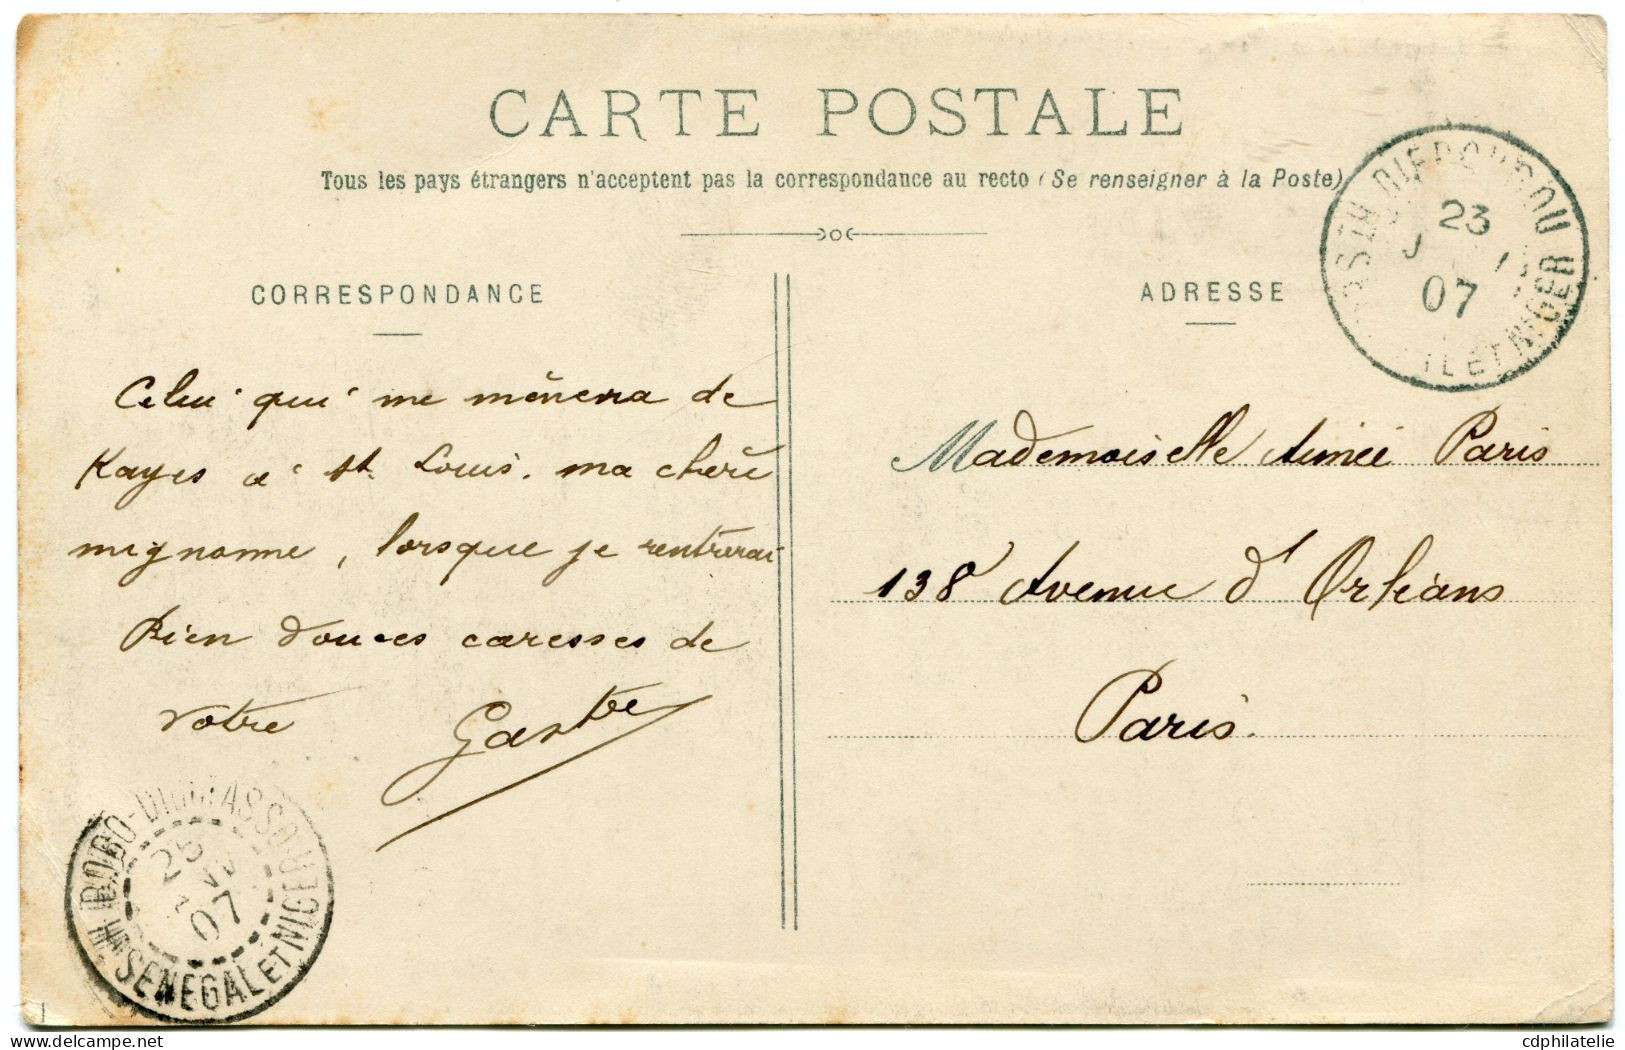 CARTE POSTALE
Tous les pays étrangers n'acceptent pas la correspondance au recto (Se renseigner à la Poste)
CORRESPONDANCE
Celui qui me mènera de
Kayes à St. Louis. ma chère
mignonne, lorsque je rentrerai
Bien douces caresses de
votre
BOBO-DIOULASSO
25
07
HT SENEGAL ET NIGER
ADRESSE
Mademoiselle Aimée Paris
138 Avenue d'Orléans
Paris.
23
07
ET NIGER
cdphilatelie